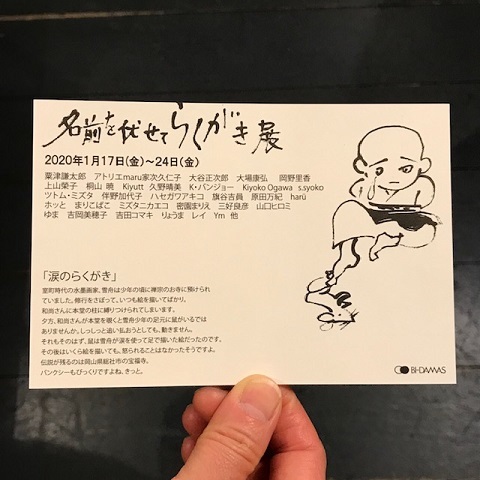 名前を伏せてらくがき展
2020年1月17日(金)〜24日(金)
粟津謙太郎 アトリエmaru家次久仁子 大谷正次郎 大場康弘 岡野里香
上山榮子 桐山 暁 Kiyutt 久野晴美 K・バンジョー Kiyoko Ogawa s.syoko
ツトム・ミズタ 伴野加代子 ハセガワアキコ 旗谷吉員 原田万紀 harü
ホッと まりこぱこ ミズタニカエコ 密園まりえ 三好良彦 山口ヒロミ
ゆま 吉岡美穂子 吉田コマキ りょうま レイ Ym 他
「涙のらくがき」
室町時代の水墨画家、雪舟は少年の頃に禅宗のお寺に預けられ
ていました。修行をさぼって、いつも絵を描いてばかり。
和尚さんに本堂の柱に縛りつけられてしまいます。
夕方、和尚さんが本堂を覗くと雪舟少年の足元に鼠がいるでは
ありませんか。しっしっと追い払おうとしても、動きません。
それもそのはず、鼠は雪舟が涙を使って足で描いた絵だったのです。
その後はいくら絵を描いても、怒られることはなかったそうですよ。
伝説が残るのは岡山県総社市の宝福寺。
バンクシーもびっくりですよね、きっと。
BI-DAMAS